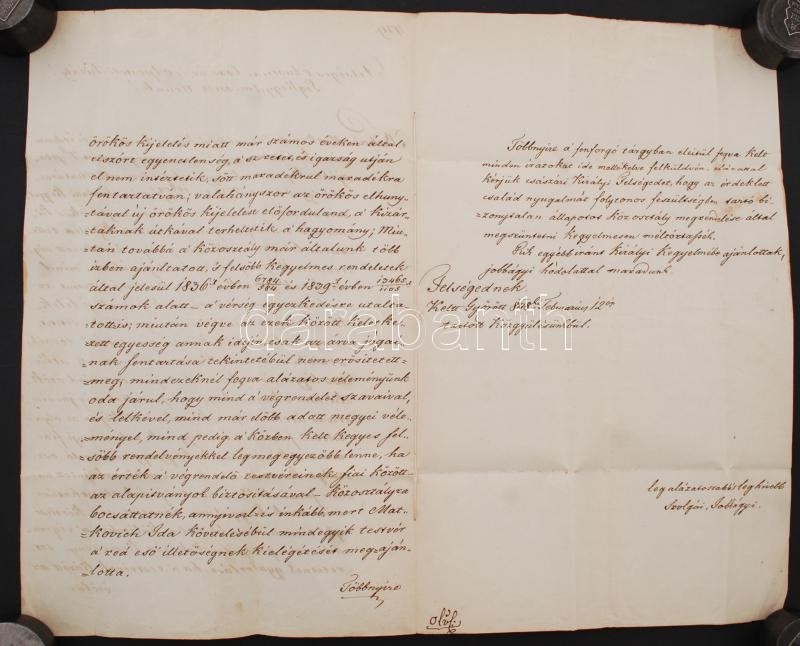 örökös kijelelés miatt már számos éveken által
elszórt egyenetlenség, a' szeretet, és igazság utján
el nem intéztetik, sött maradékrul maradékra
fentartatván; valahányszor az örökös elhuny-
=tával új örökös kijelelést előforduland, a' kizár-
=táknak útkával terheltetik a' hagyomány; Miu-
=tán továbbá a' közosztály már általunk több
ízben ajánltatott, 's felsőbb kegyelmes rendeletek
által jelesül 1836k évben 6784/584 és 1839k évben 13465/1105
számok alatt – a' vérség egyezkedésre utalta-
=tott is; miután végre az ezek között keletke-
=zett egyesség annak idején csak az árva jogai-
=nak fentartása tekintetébül nem erősítetett
=meg; mindezeknél fogva alázatos véleményünk
oda járul, hogy mind a' végrendelet szavaival,
és lelkével, mind már előbb adatt megyei véle-
=ményel, mind pedig a' közben kelt kegyes fel-
=sőbb rendelvényekkel legmegegyezőbb lenne, ha
az érték a' végrendelő testvéreinek fiai között –
az alapitványok biztositásával – közosztályra
bocsáttatnék, annyival is inkább, mert Mat-
=kovich Ida követelésébül mindegyik testvér
a' reá eső illetőségnek kielégítését megaján-
=lotta.
Többnyire
Többnyire a' fenforgó tárgyban eleitül fogva kelt
minden iratokat ide mellékelve felküldvén, alázattal
kérjük császári Királyi Felségedet, hogy az érdeklett
család nyugalmát folytonos feszültségben tartó bi-
=zonytalan állapotot közosztály megrendelése által
megszüntetni kegyelmesen méltóztassék.
Kik egyébbiránt Királyi Kegyelmébe ajánlottak,
jobbágyi hódolattal maradunk.
Felségednek
Kelt Győrött 848k Februarius 12én
tartott Közgyülésünkbül.
legalázatosabb, leghivebb
Szolgái, Jobbágyi.
darabanth